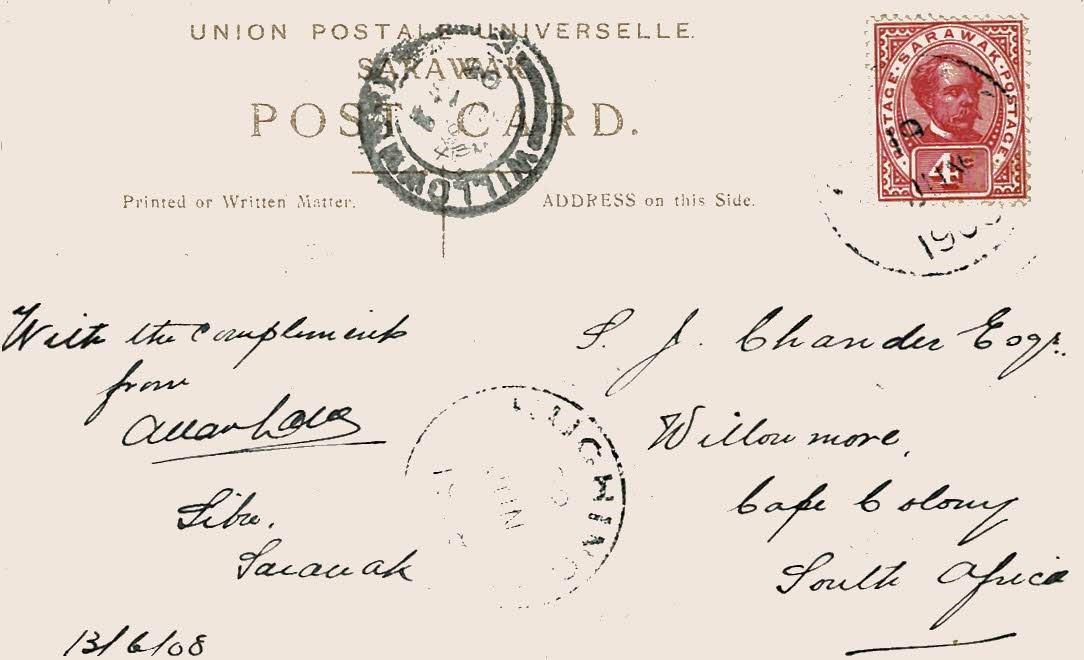 UNION POSTALE UNIVERSELLE.
SARAWAK
POST CARD.
Printed or Written Matter.
ADDRESS on this Side.
POSTAGE·SARAWAK·POSTAGE
4c
WILLOWMORE
19
1908
With the compliments
from
Allan
Sibu.
Sarawak
13/6/08
KUCHING
JUN
S. J. Chander Esqr.
Willowmore,
Cape Colony
South Africa